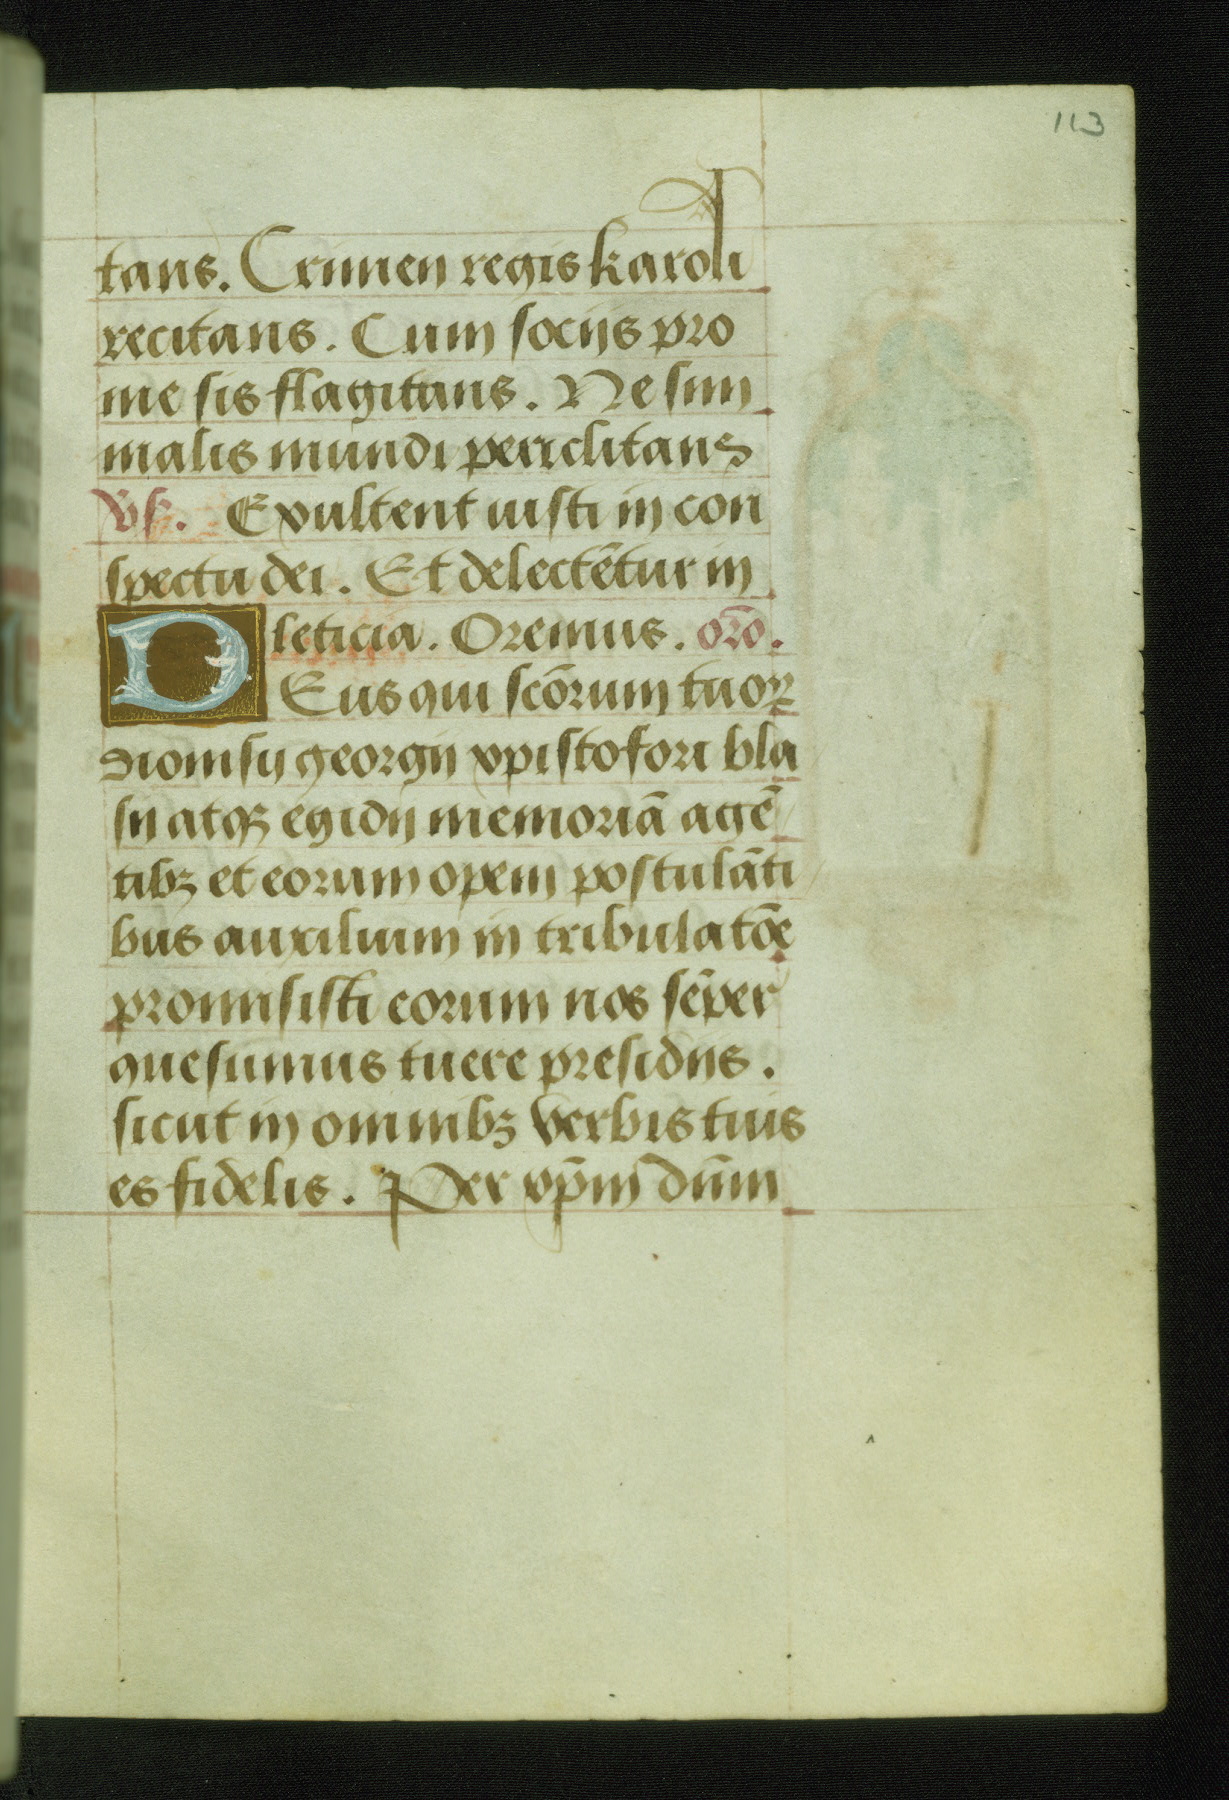 113
tans. Crimen regis karoli
recitans. Cum socijs pro
me sis flagitans. Ne sim
malis mundi periclitans
vs. Exultent iusti in con
spectu dei. Et delectētur in
leticia. Oremus. orō.
DEus qui scōrum tuoꝝ
dionisij georgij xpistofori bla
sij atqꝫ egidij memoriā agē
tibꝫ et eorum opem postulāti
bus auxilium in tribulatōe
promisisti eorum nos sēper
quesumus tuere presidijs.
sicut in omnibꝫ verbis tuis
es fidelis. Per xp̄m dn̄m